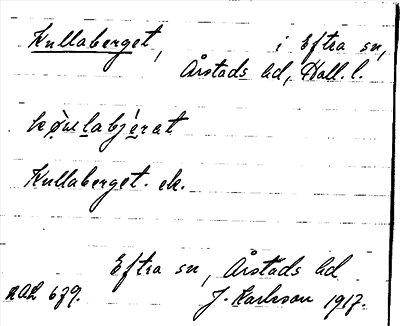 Kullaberget, i Eftra sn,
Årstads hd, Hall. l.
kø̀wlabjèrat
Kullaberget. ek.
Eftra sn, Årstads hd
NAL 679. J. Karlsson 1917.